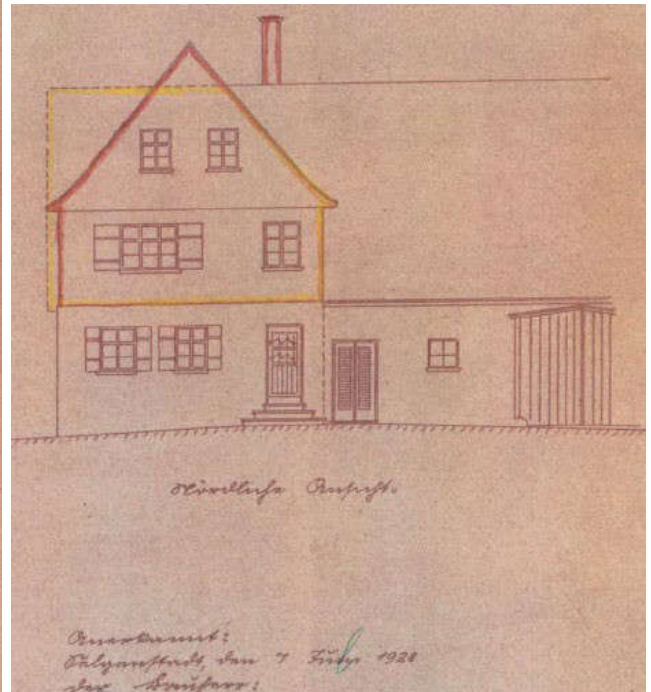 Nördliche Ansicht.
Anerkannt:
Seligenstadt, den 7 1928
der Bauherr: